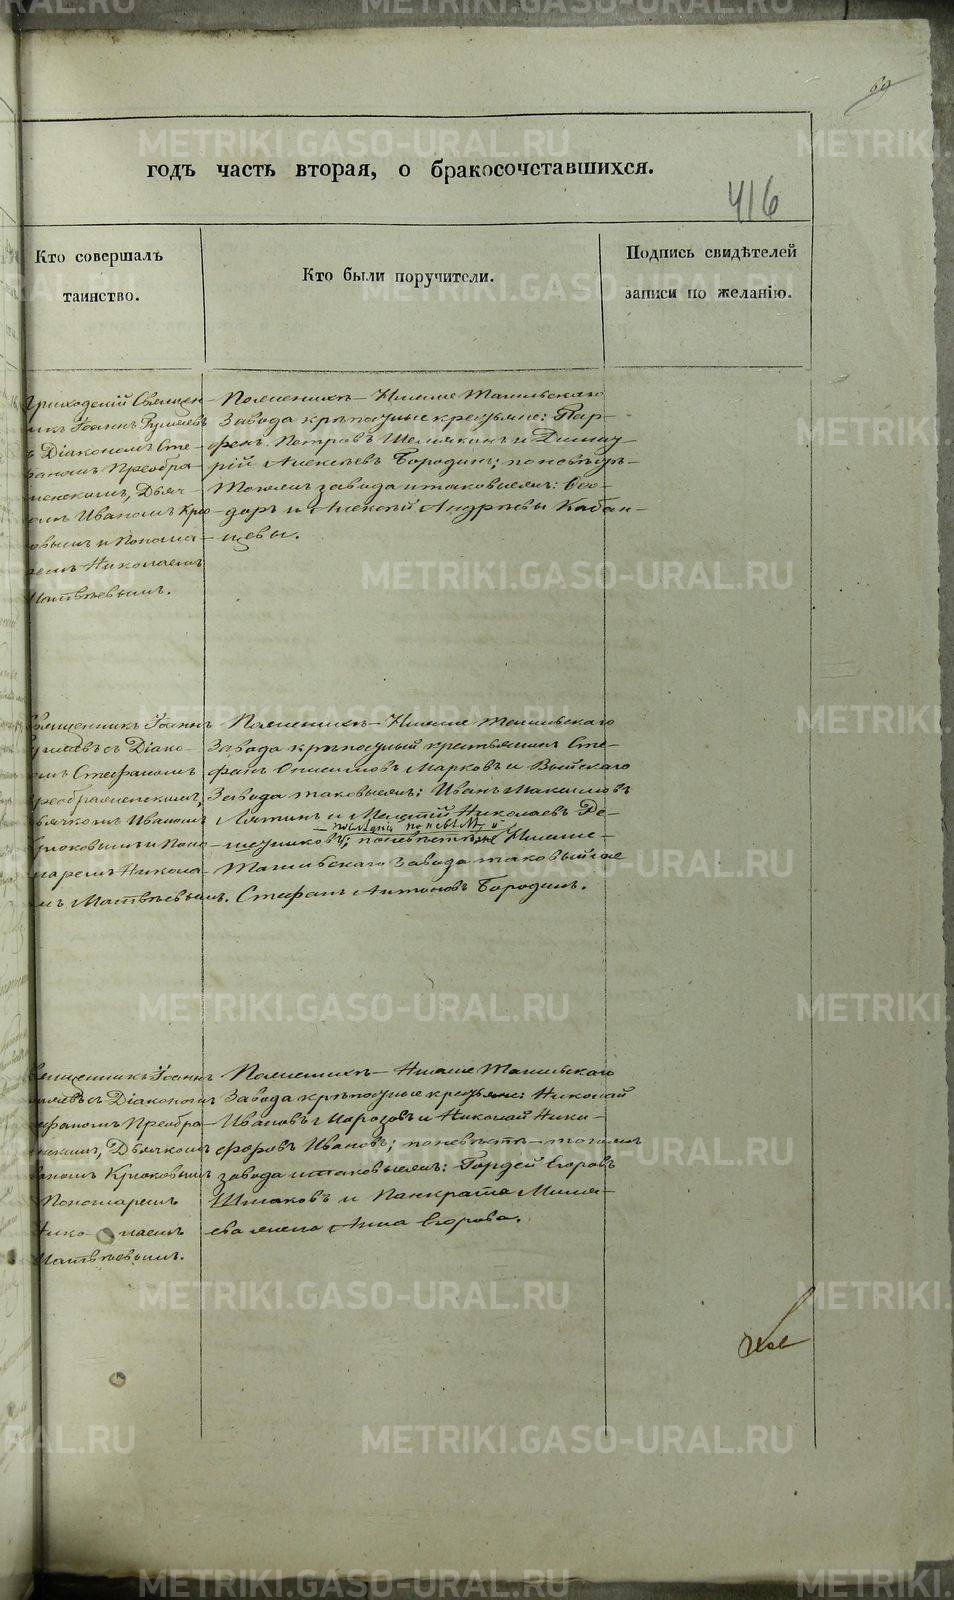 69
годъ часть вторая, о бракосочетавшихся.
416
Кто совершалъ
таинство.
Кто были поручители.
Подпись свидѣтелей
записи по желанію.
Приходскій Священ-
никъ Іоаннъ
съ Діакономъ Сте-
фаномъ Преобра-
женскимъ, Дьяч-
комъ Иваномъ Крю-
ковымъ и Понома-
ремъ Николаемъ
Матвѣевымъ.
По женихѣ – Нижне Тагильскаго
Завода крѣпостные крестьяне: Пар-
фенъ Петровъ Шелякинъ и Дмит-
рій Алексѣевъ Бородинъ; по невѣстѣ –
тогожъ завода и таковыежъ: Ѳео-
доръ и Алексѣй Андрѣевы Кабан-
цевы.
Священникъ Іоаннъ
съ Діако-
номъ Стефаномъ
Преображенскимъ,
Дьячкомъ Иваномъ
Крюковымъ и Поно-
маремъ Никола-
емъ Матвѣевымъ.
По женихѣ – Нижне Тагильскаго
Завода крѣпостный крестьянинъ Сте-
фанъ Онисимовъ Марковъ и Выйскаго
Завода таковыежъ: Иванъ Максимовъ
Лятинъ и Николаевъ Ре-
шетниковъ; по невѣстѣ Нижне-
Тагильскаго завода таковый же
Стефанъ Антоновъ Бородинъ.
Священникъ Іоаннъ
съ Діакономъ
Стефаномъ Преобра-
женскимъ, Дьячкомъ
Иваномъ Крюковымъ
и Пономаремъ
Николаемъ
Матвѣевымъ.
По женихѣ – Нижне Тагильскаго
Завода крѣпостные крестьяне: Николай
Ивановъ Морозовъ и Николай Ники-
форовъ Ивановъ; по невѣстѣ – тогожъ
завода и таковыежъ: Гордей Егоровъ
Шмаковъ и Панкрата Мише-
ева жена Анна Егорова.
METRIKI.GASO-URAL.RU